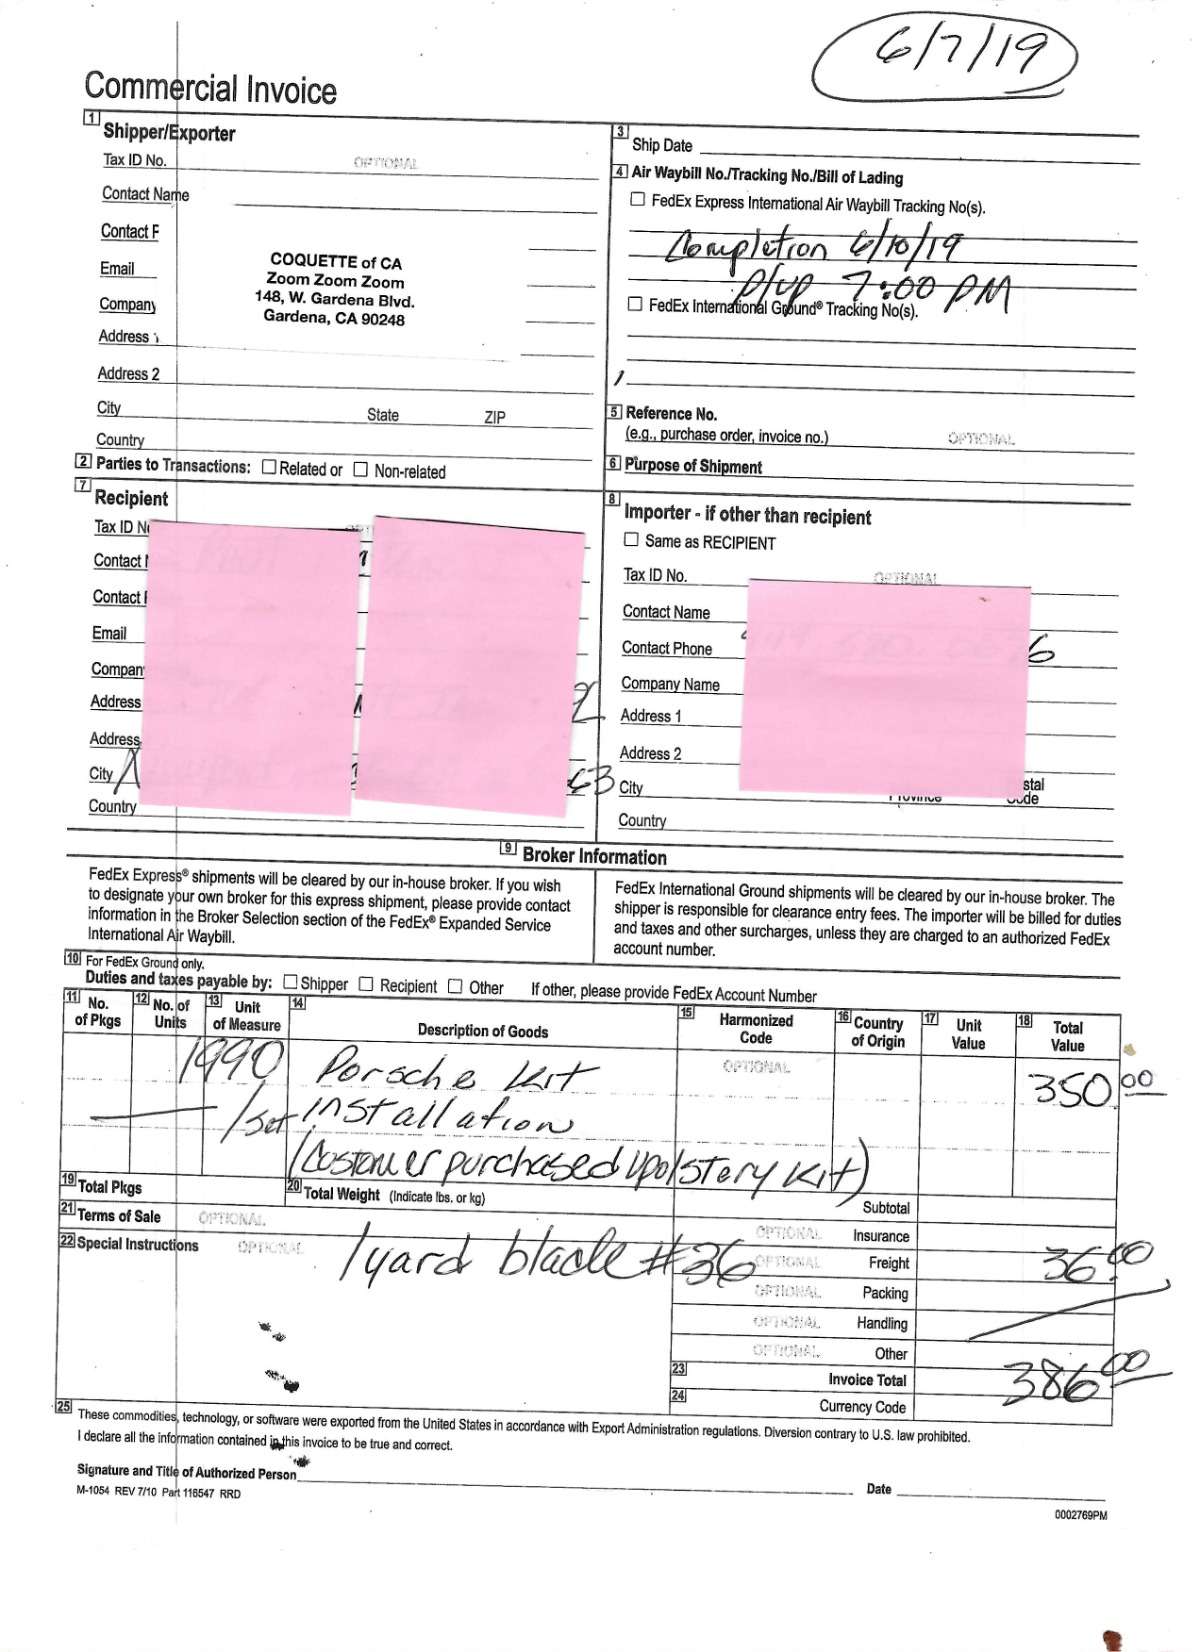 6/7/19
Commercial Invoice
1 Shipper/Exporter
Tax ID No. OPTIONAL
Contact Name
Contact P
Email
Company
Address 1
COQUETTE of CA
Zoom Zoom Zoom
148, W. Gardena Blvd.
Gardena, CA 90248
Address 2
City State ZIP
Country
2 Parties to Transactions: Related or Non-related
3 Ship Date
4 Air Waybill No./Tracking No./Bill of Lading
FedEx Express International Air Waybill Tracking No(s).
Completion 6/10/19
P/up 7:00 PM
FedEx International Ground® Tracking No(s).
5 Reference No.
(e.g., purchase order, invoice no.) OPTIONAL
6 Purpose of Shipment
7 Recipient
Tax ID N
Contact
Contact
Email
Compan
Address 2
Address
City 63
Country
8 Importer - if other than recipient
Same as RECIPIENT
Tax ID No. OPTIONAL
Contact Name
Contact Phone 6
Company Name
Address 1
Address 2
City Province stal
Code
Country
9 Broker Information
FedEx Express® shipments will be cleared by our in-house broker. If you wish
to designate your own broker for this express shipment, please provide contact
information in the Broker Selection section of the FedEx® Expanded Service
International Air Waybill.
FedEx International Ground shipments will be cleared by our in-house broker. The
shipper is responsible for clearance entry fees. The importer will be billed for duties
and taxes and other surcharges, unless they are charged to an authorized FedEx
account number.
10 For FedEx Ground only.
Duties and taxes payable by: Shipper Recipient Other If other, please provide FedEx Account Number
11 No. of Pkgs 12 No. of Units 13 Unit of Measure 14 Description of Goods 15 Harmonized Code 16 Country of Origin 17 Unit Value 18 Total Value
OPTIONAL
1990 Porsche Kit 350.00
1 set installation
(Costomer purchased Upolstery Kit)
19 Total Pkgs 20 Total Weight (Indicate lbs. or kg) Subtotal
21 Terms of Sale OPTIONAL OPTIONAL Insurance
22 Special Instructions OPTIONAL 1 yard #36 OPTIONAL Freight 36.00
OPTIONAL Packing
OPTIONAL Handling
OPTIONAL Other
23 Invoice Total 386.00
24 Currency Code
25 These commodities, technology, or software were exported from the United States in accordance with Export Administration regulations. Diversion contrary to U.S. law prohibited.
I declare all the information contained in this invoice to be true and correct.
Signature and Title of Authorized Person Date
M-1054 REV 7/10 Part 116547 RRD 0002769PM